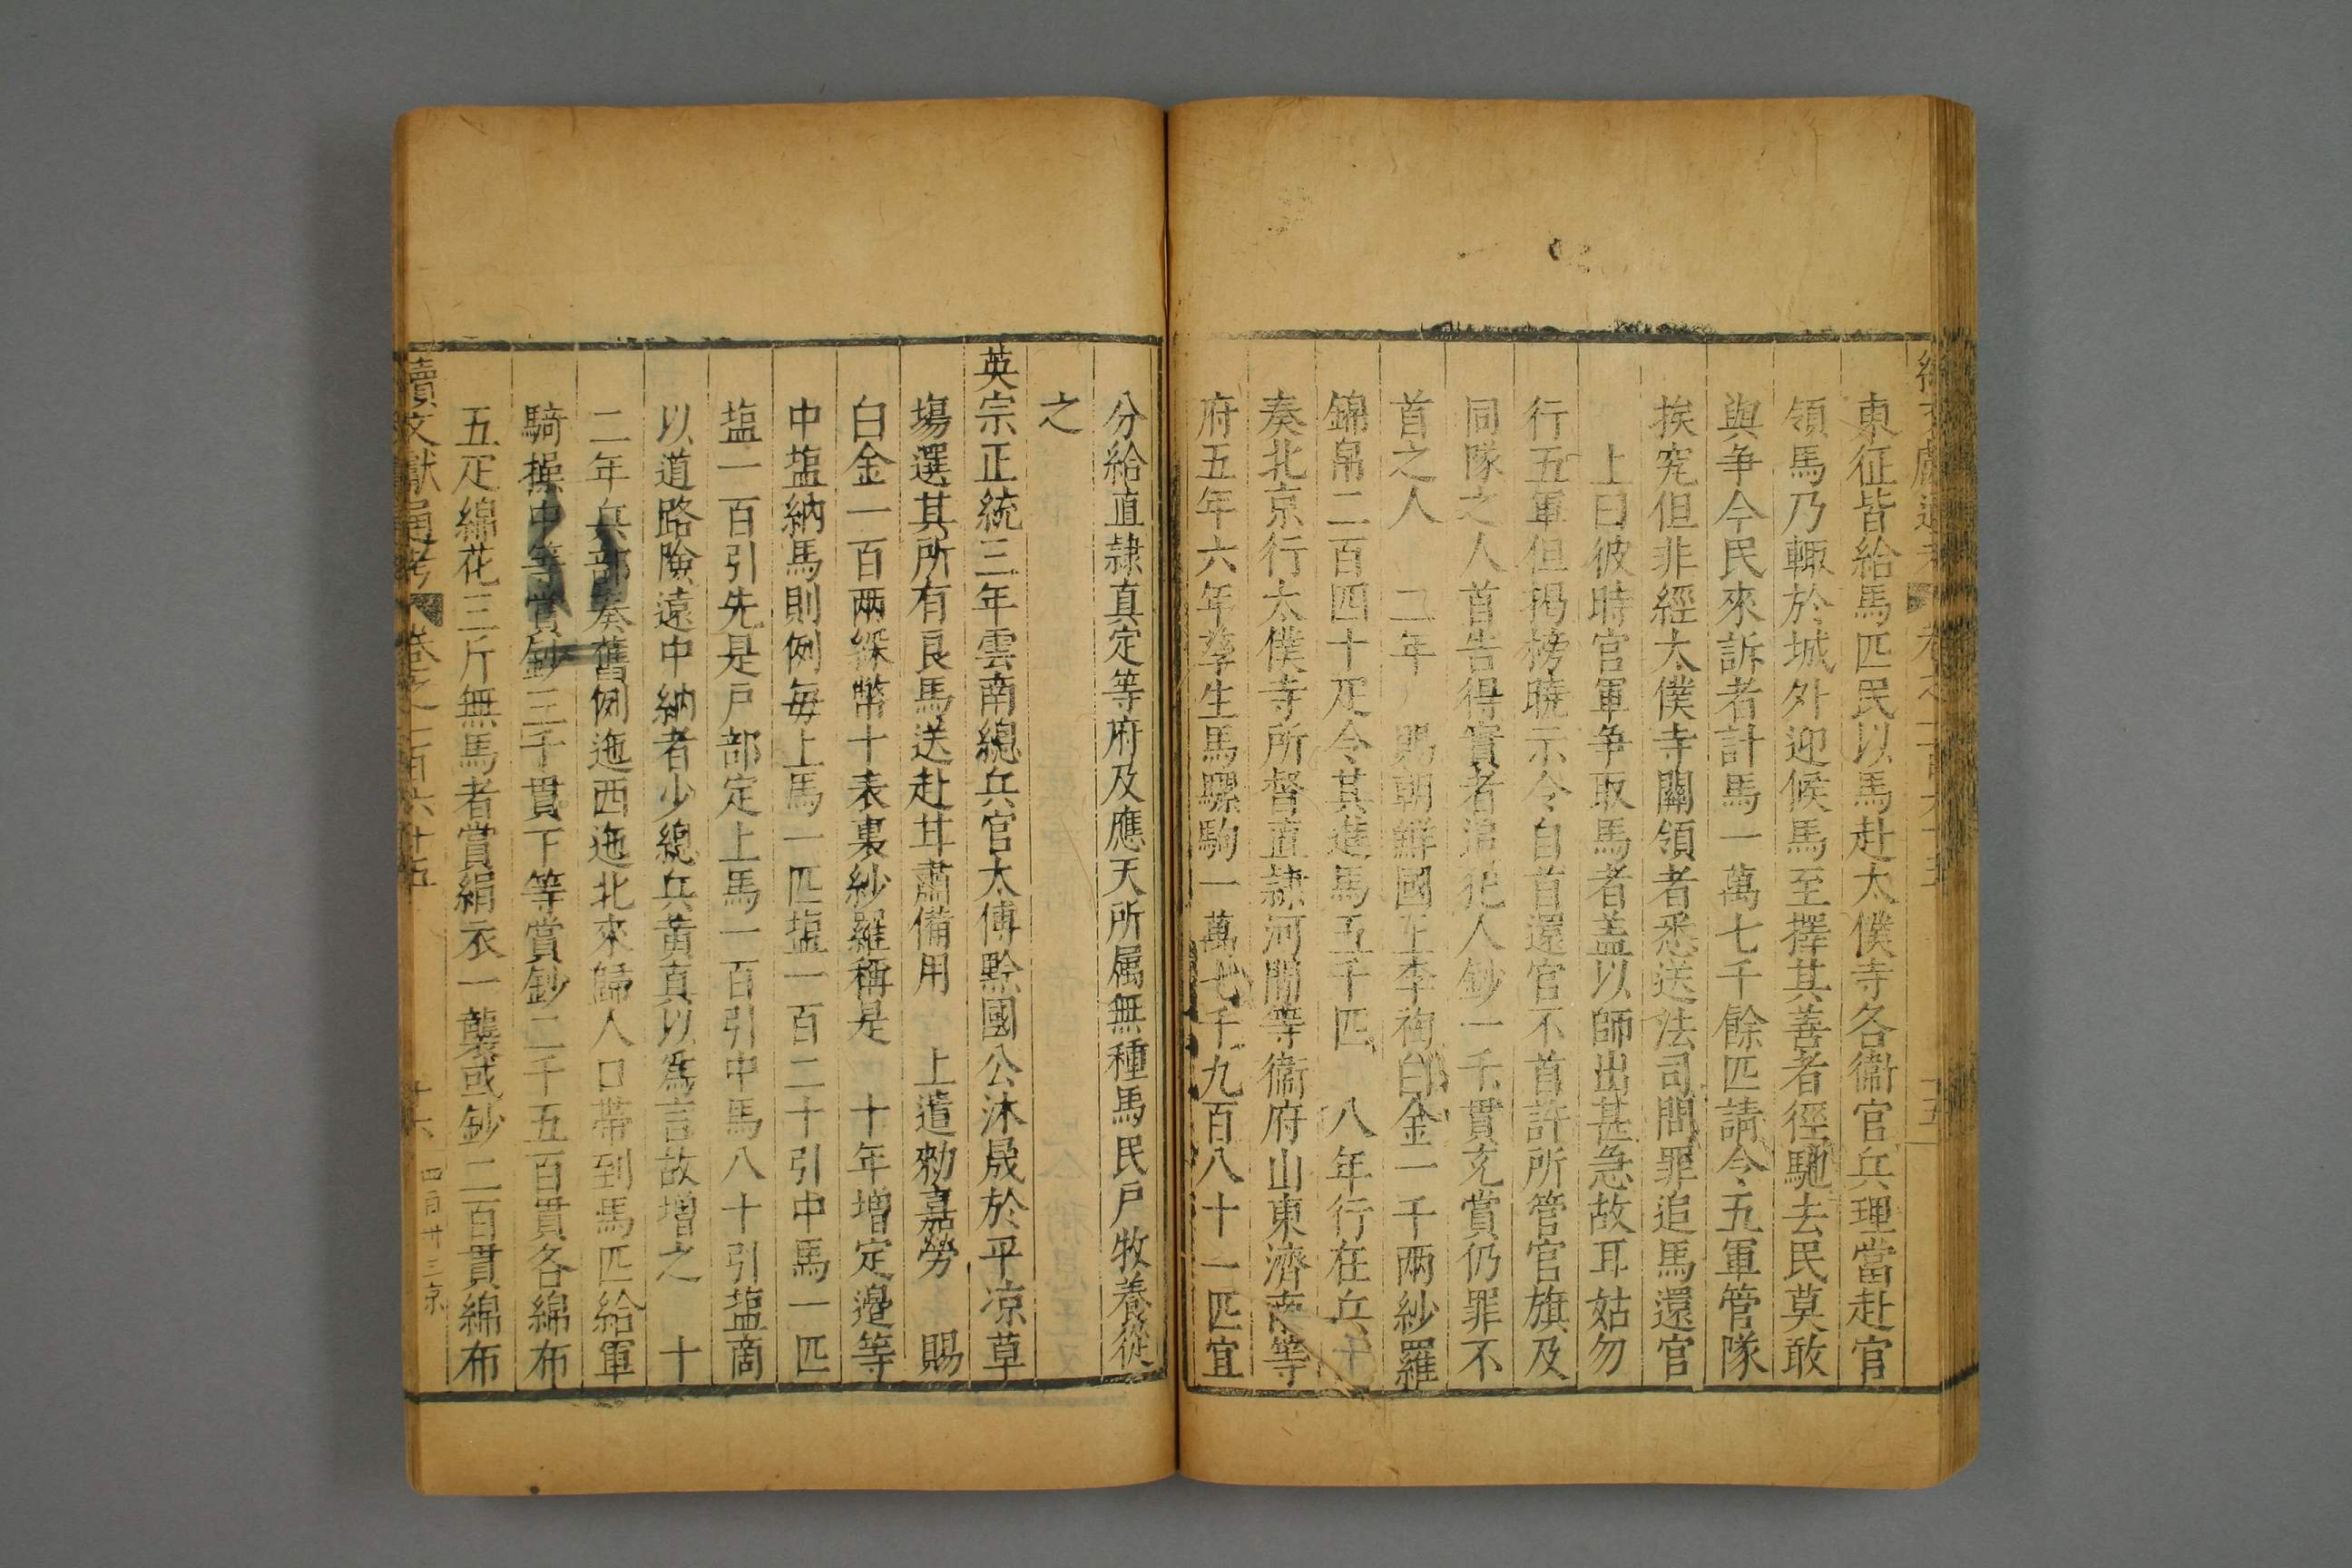 東征皆給馬匹民以馬赴太僕寺各衞官兵理當赴官
領馬乃輒於城外迎候馬至擇其善者徑馳去民莫敢
與争今民來訴者計馬一萬七千餘匹請令五軍管隊
挨究但非經太僕寺關領者悉送法司問罪追馬還官
上曰彼時官軍争取馬者盖以師出甚急故耳姑勿
行五軍但揭榜曉示令自首還官不首許所管官旗及
同隊之人首告得實者追犯人鈔一千貫充賞仍罪不
首之人 二年 賜朝鮮國王李裪白金一千兩紗羅
錦帛二百四十疋令其進馬五千匹 八年行在兵十
奏北京行太僕寺所督直隷河間等衞府山東濟南等
府五年六年孳生馬騾駒一萬七千九百八十一匹宜
分給直隷真定等府及應天所属無種馬民戶牧養從
之
英宗正統三年雲南總兵官太傅黔國公沐晟於平凉草
塲選其所有良馬送赴甘肅備用 上遣勑嘉勞 賜
白金一百两綵幣十表裏紗羅稱是 十年增定邊等
中塩納馬則例每上馬一匹塩一百二十引中馬一匹
塩一百引先是戶部定上馬一百引中馬八十引塩商
以道路險遠中納者少總兵黄真以為言故增之 十
二年兵部奏舊例迤西迤北來歸人口帶到馬匹給軍
騎操中等賞鈔三千貫下等賞鈔二千五百貫各綿布
五疋綿花三斤無馬者賞絹衣一襲或鈔二百貫綿布
續文獻通考 卷之二百六十五 十六 四百廿三